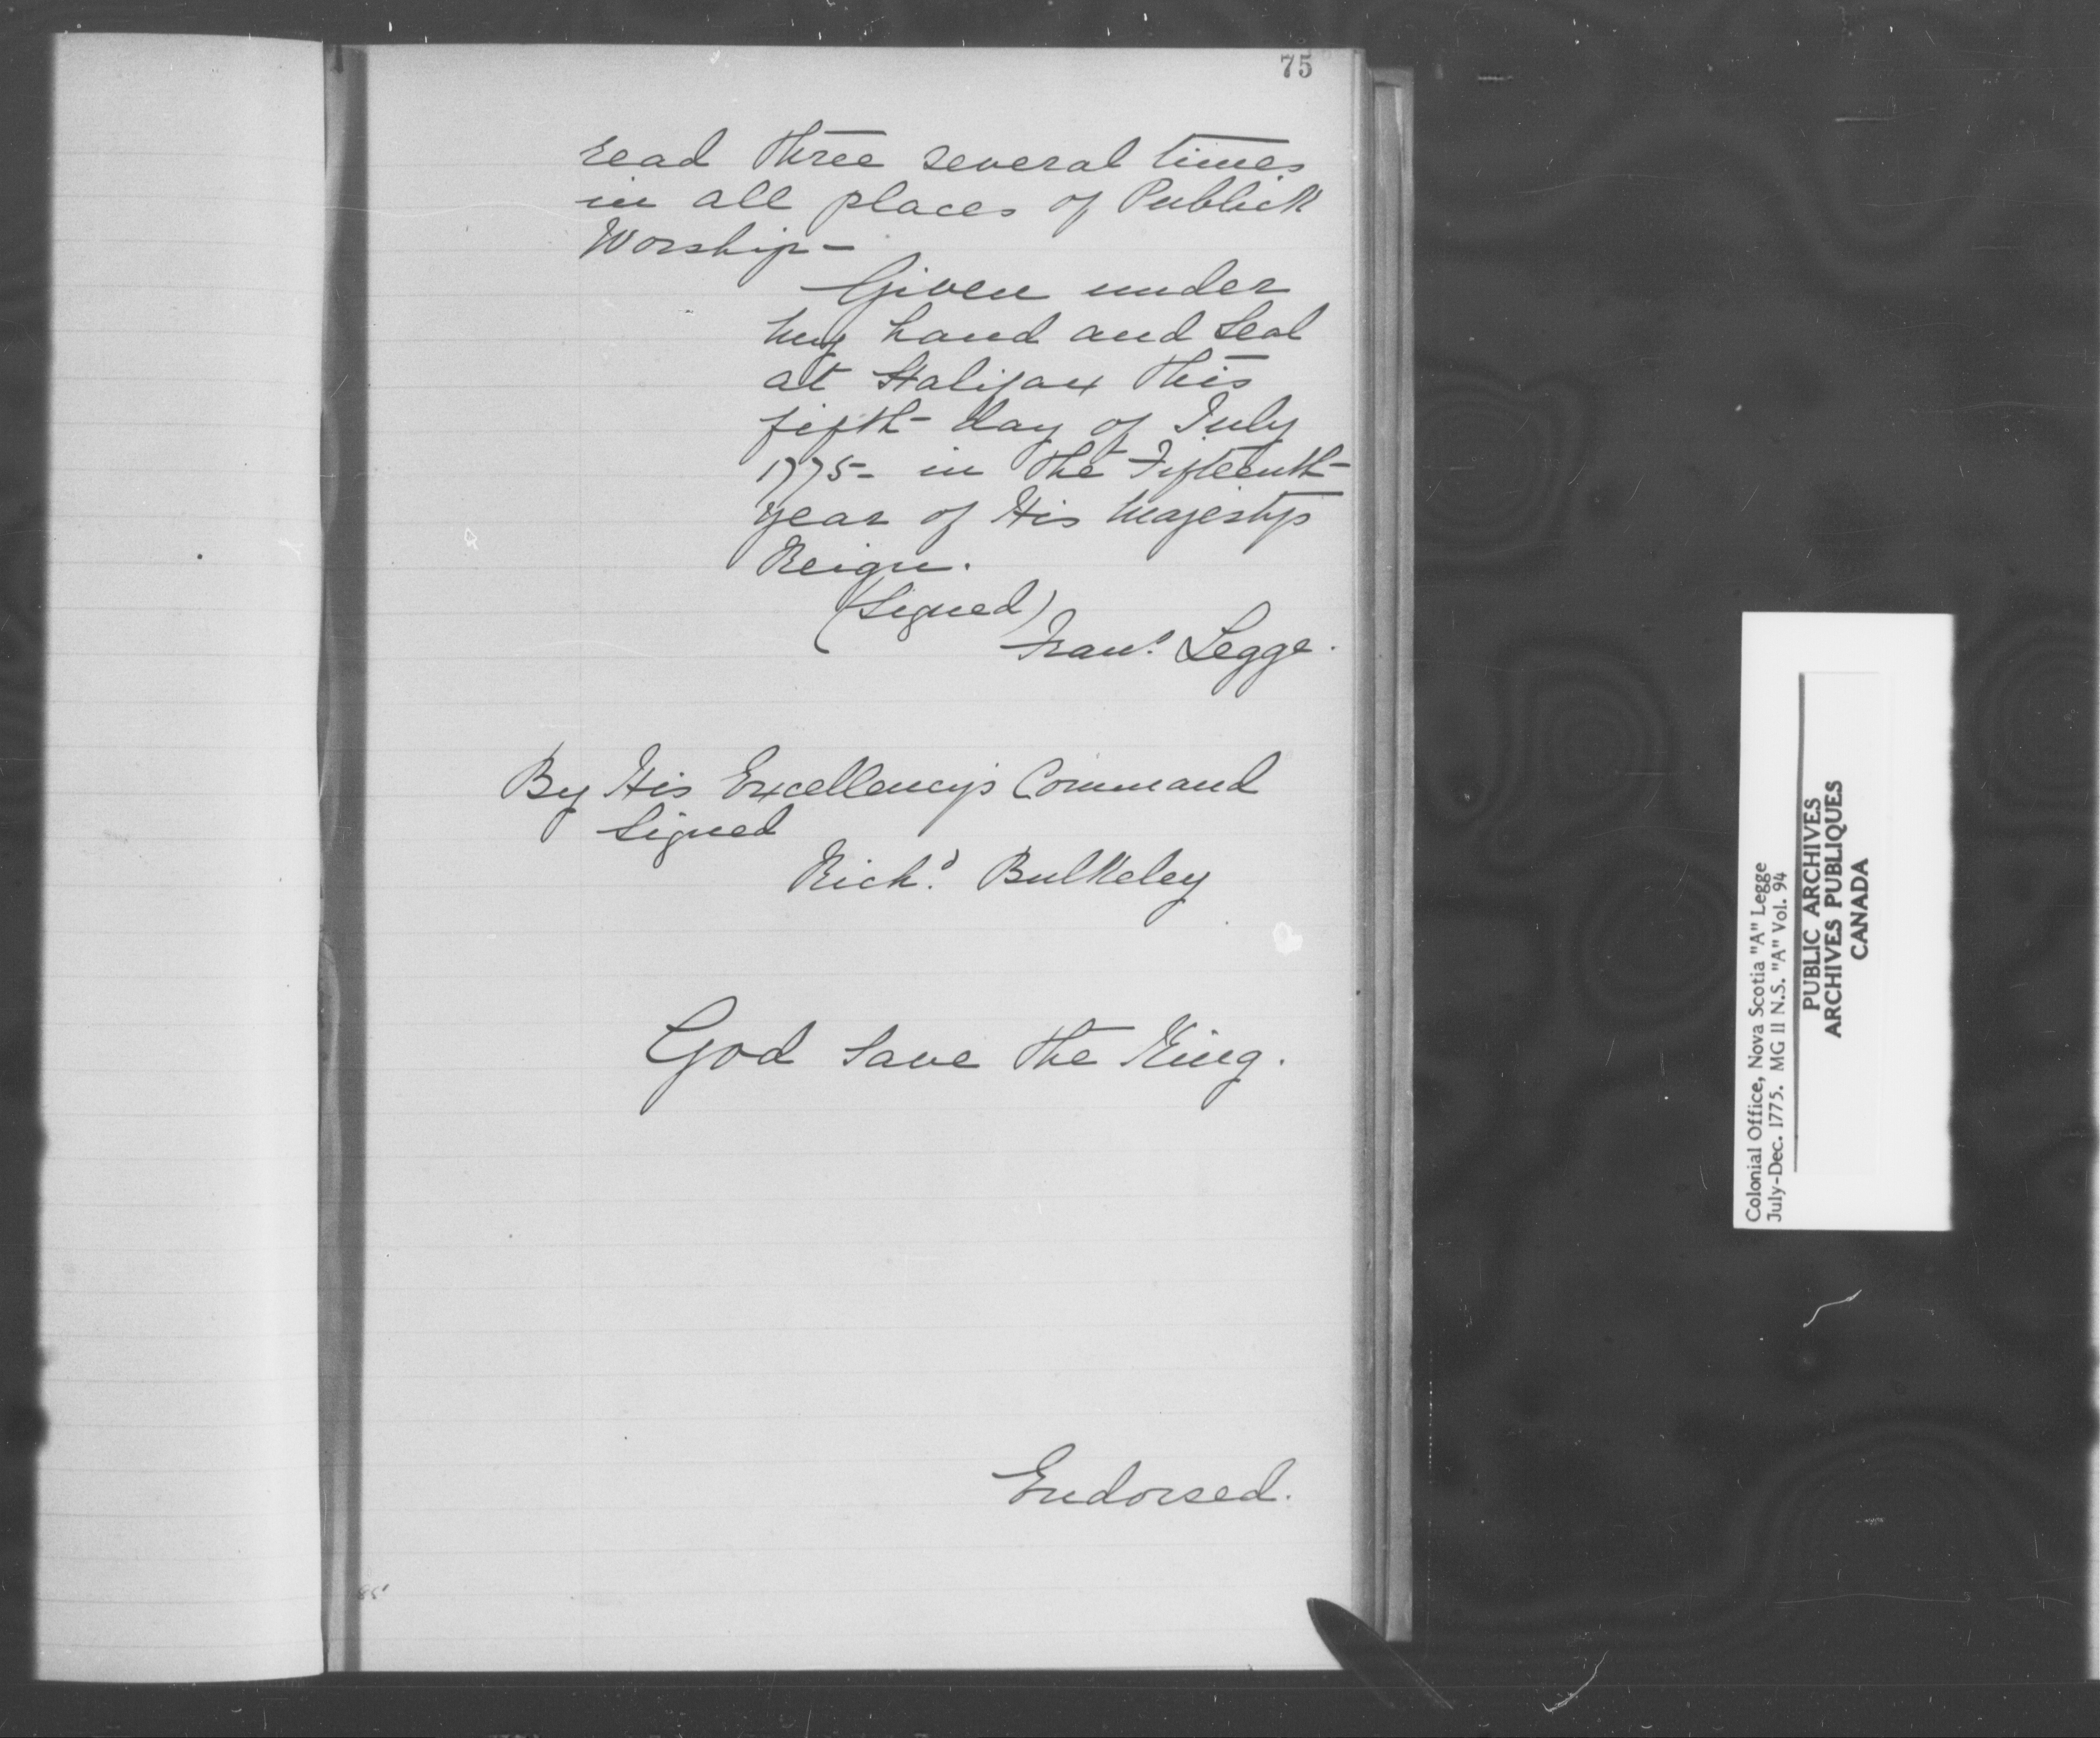 75
read three several times
in all places of Publick
Worship -
Given under
my hand and Seal
at Halifax this
fifth day of July
1775 - in the Fifteenth
year of His Majestys
Reign.
(Signed)
Frans. Legge.
By His Excellency's Command
Signed
Richd. Bulkeley
God Save the King.
Endorsed.
85
Colonial Office, Nova Scotia "A" Legge
July-Dec. 1775. MG II N.S. "A" Vol. 94
PUBLIC ARCHIVES
ARCHIVES PUBLIQUES
CANADA